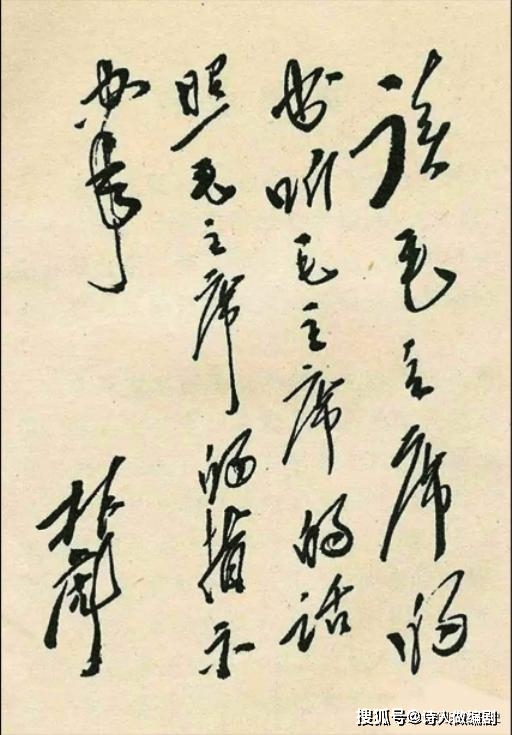 读毛主席的
书听毛主席的话
照毛主席的指示
办事
林彪
搜狐号@诗人做编剧